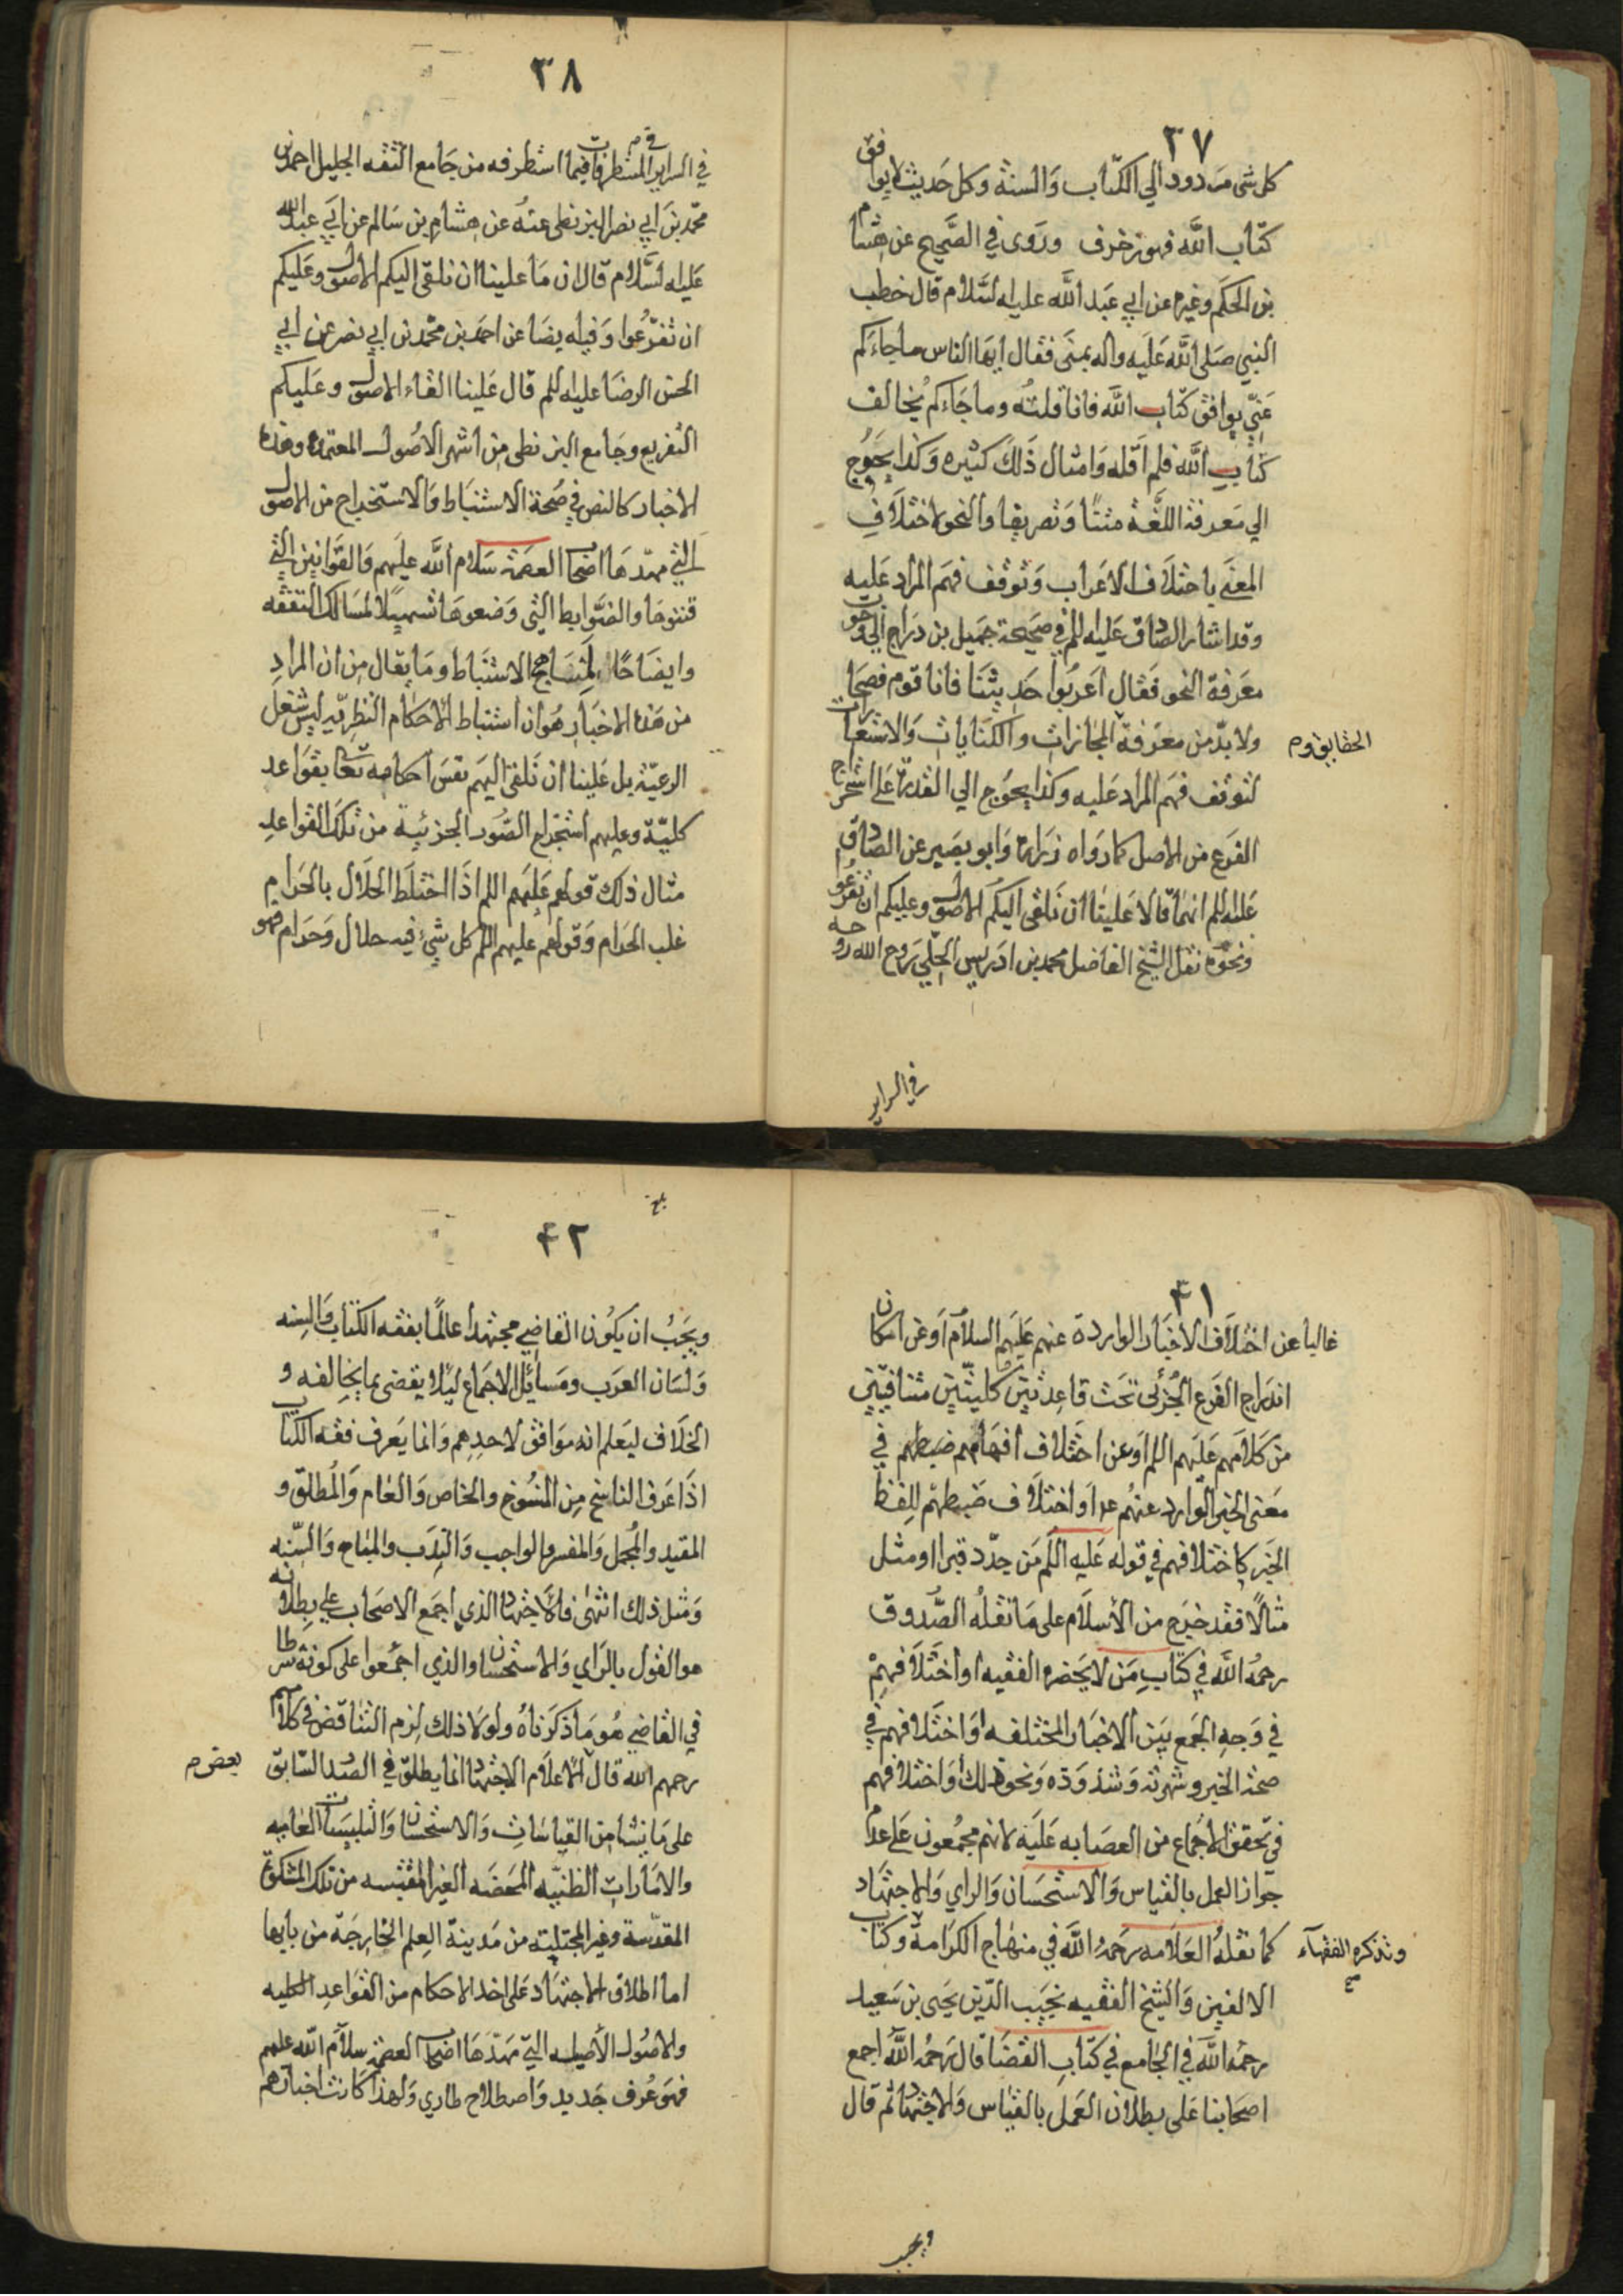 ٣٧
كل شئ مردود الي الكتاب والسنة وكل حديث لا يوافق
كتاب الله فهو زخرف وروى في الصحيح عن هشام
بن الحكم وغيره عن ابي عبد الله عليه السلام قال خطب
النبي صلى الله عليه واله بمنى فقال ايها الناس ما جاءكم
عني يوافق كتاب الله فانا قلته وما جاءكم يخالف
كتاب الله فلم اقله وامثال ذلك كثيره وكذا يحوج
الي معرفة اللغة متنًا وتصريفا والنحو لاختلاف
المعنى باختلاف الاعراب وتوقف فهم المراد عليه
وقد اشار الصادق عليه السلم في صحيحة جميل بن دراج الي وجوب
معرفة النحو فقال اعربوا حديثنا فانا قوم فصحاء
ولا بد من معرفة المجازات والكنايات والاستعارات
الحقايق و م
لتوقف فهم المراد عليه وكذا يحوج الي القدرة على استخراج
الفرع من الاصل كما رواه زرارة وابو بصير عن الصادق
عليه السلم انهما قالا علينا ان نلقى اليكم الاصول وعليكم ان تفرعوا
ونحوه نقل الشيخ الفاضل محمد بن ادريس الحلي روح الله روحه
في السراير
٣٨
في السراير المستطرفات فيما استطرفه من جامع الثقه الجليل احمد بن
محمد بن ابي نصر البزنطى عنه عن هشام بن سالم عن ابي عبد الله
عليه السلام قال ان ما علينا ان نلقى اليكم الاصول وعليكم
ان تفرعوا وفيه ايضا عن احمد بن محمد بن ابي نصر عن ابي
الحسن الرضا عليه السلم قال علينا القاء الاصول وعليكم
التفريع وجامع البزنطى من اشهر الاصول المعتمدة وهذه
الاخبار كالنص في صحة الاستنباط والاستخراج من الاصول
التي مهدها اصحاب العصمة سلام الله عليهم والقوانين التي
قننوها والضوابط التي وضعوها تسهيلا لمسالك التفقه
وايضاحًا لمناهج الاستنباط وما يقال من ان المراد
من هذه الاخبار هو ان استنباط الاحكام النظرية ليس شغل
الرعية بل علينا ان نلقى اليهم نفس احكامه تعالى بقواعد
كلية وعليهم استخراج الصور الجزئية من تلك القواعد
مثال ذلك قولهم عليهم السلم اذا اختلط الحلال بالحرام
غلب الحرام وقولهم عليهم السلم كل شئ فيه حلال وحرام فهو
٤١
غالبا عن اختلاف الاخبار الواردة عنهم عليهم السلام او عن امكان
اندراج الفرع الجزئي تحت قاعدتين كليتين متنافيتين
من كلامهم عليهم السلم او عن اختلاف افهامهم ضبطهم في
معنى الخبر الوارد عنهم عدا واختلاف ضبطهم للفظ
الخبر كاختلافهم في قوله عليه السلم من جدد قبرا او مثل
مثالا فقد خرج من الاسلام على ما نقله الصدوق
رحمه الله في كتاب من لا يحضره الفقيه او اختلافهم
في وجه الجمع بين الاخبار المختلفه او اختلافهم في
صحة الخبر وشهرته وشذوذه ونحو ذلك واختلافهم
في تحقق الاجماع من العصابه عليه لانهم مجمعون على عدم
جواز العمل بالقياس والاستحسان والراي والاجتهاد
كما نقله العلامه رحمه الله في منهاج الكرامة وكتاب
وتذكرة الفقهاء
الالفين والشيخ الفقيه نجيب الدين يحيى بن سعيد
رحمه الله في الجامع في كتاب القضا قال رحمه الله اجمع
اصحابنا على بطلان العمل بالقياس والاجتهاد ثم قال
ويجب
بلغ
٤٢
ويجب ان يكون القاضي مجتهدا عالمًا بفقه الكتاب والسنه
ولسان العرب ومسائل الاجماع ليلا يقضى بما يخالفه و
الخلاف ليعلم انه موافق لاحدهم وانما يعرف فقه الكتاب
اذا عرف الناسخ من المنسوخ والخاص والعام والمطلق و
المقيد والمجمل والمفسر والواجب والندب والمباح والسنه
ومثل ذلك انتهى فالاجتهاد الذي اجمع الاصحاب على بطلانه
هو القول بالراي والاستحسان والذي اجمعوا على كونه شرطا
في القاضي هو ما ذكرناه ولولا ذلك لزم التناقض في كلامهم
رحمهم الله قال الاعلام الاجتهاد انما يطلق في الصدر السابق
بعض م
على ما ينشأ من القياسات والاستحسان والتلبيسات العاميه
والامارات الظنيه المحضه الغير المقتبسه من تلك المشكوة
المقدسة وغير المجتلبة من مدينة العلم الخارجة من بابها
اما اطلاق الاجتهاد على اخذ الاحكام من القواعد الكليه
والاصول الأصيله التي مهدها اصحاب العصمة سلام الله عليهم
فهو عُرف جديد واصطلاح طاري ولهذا كانت اخبارهم